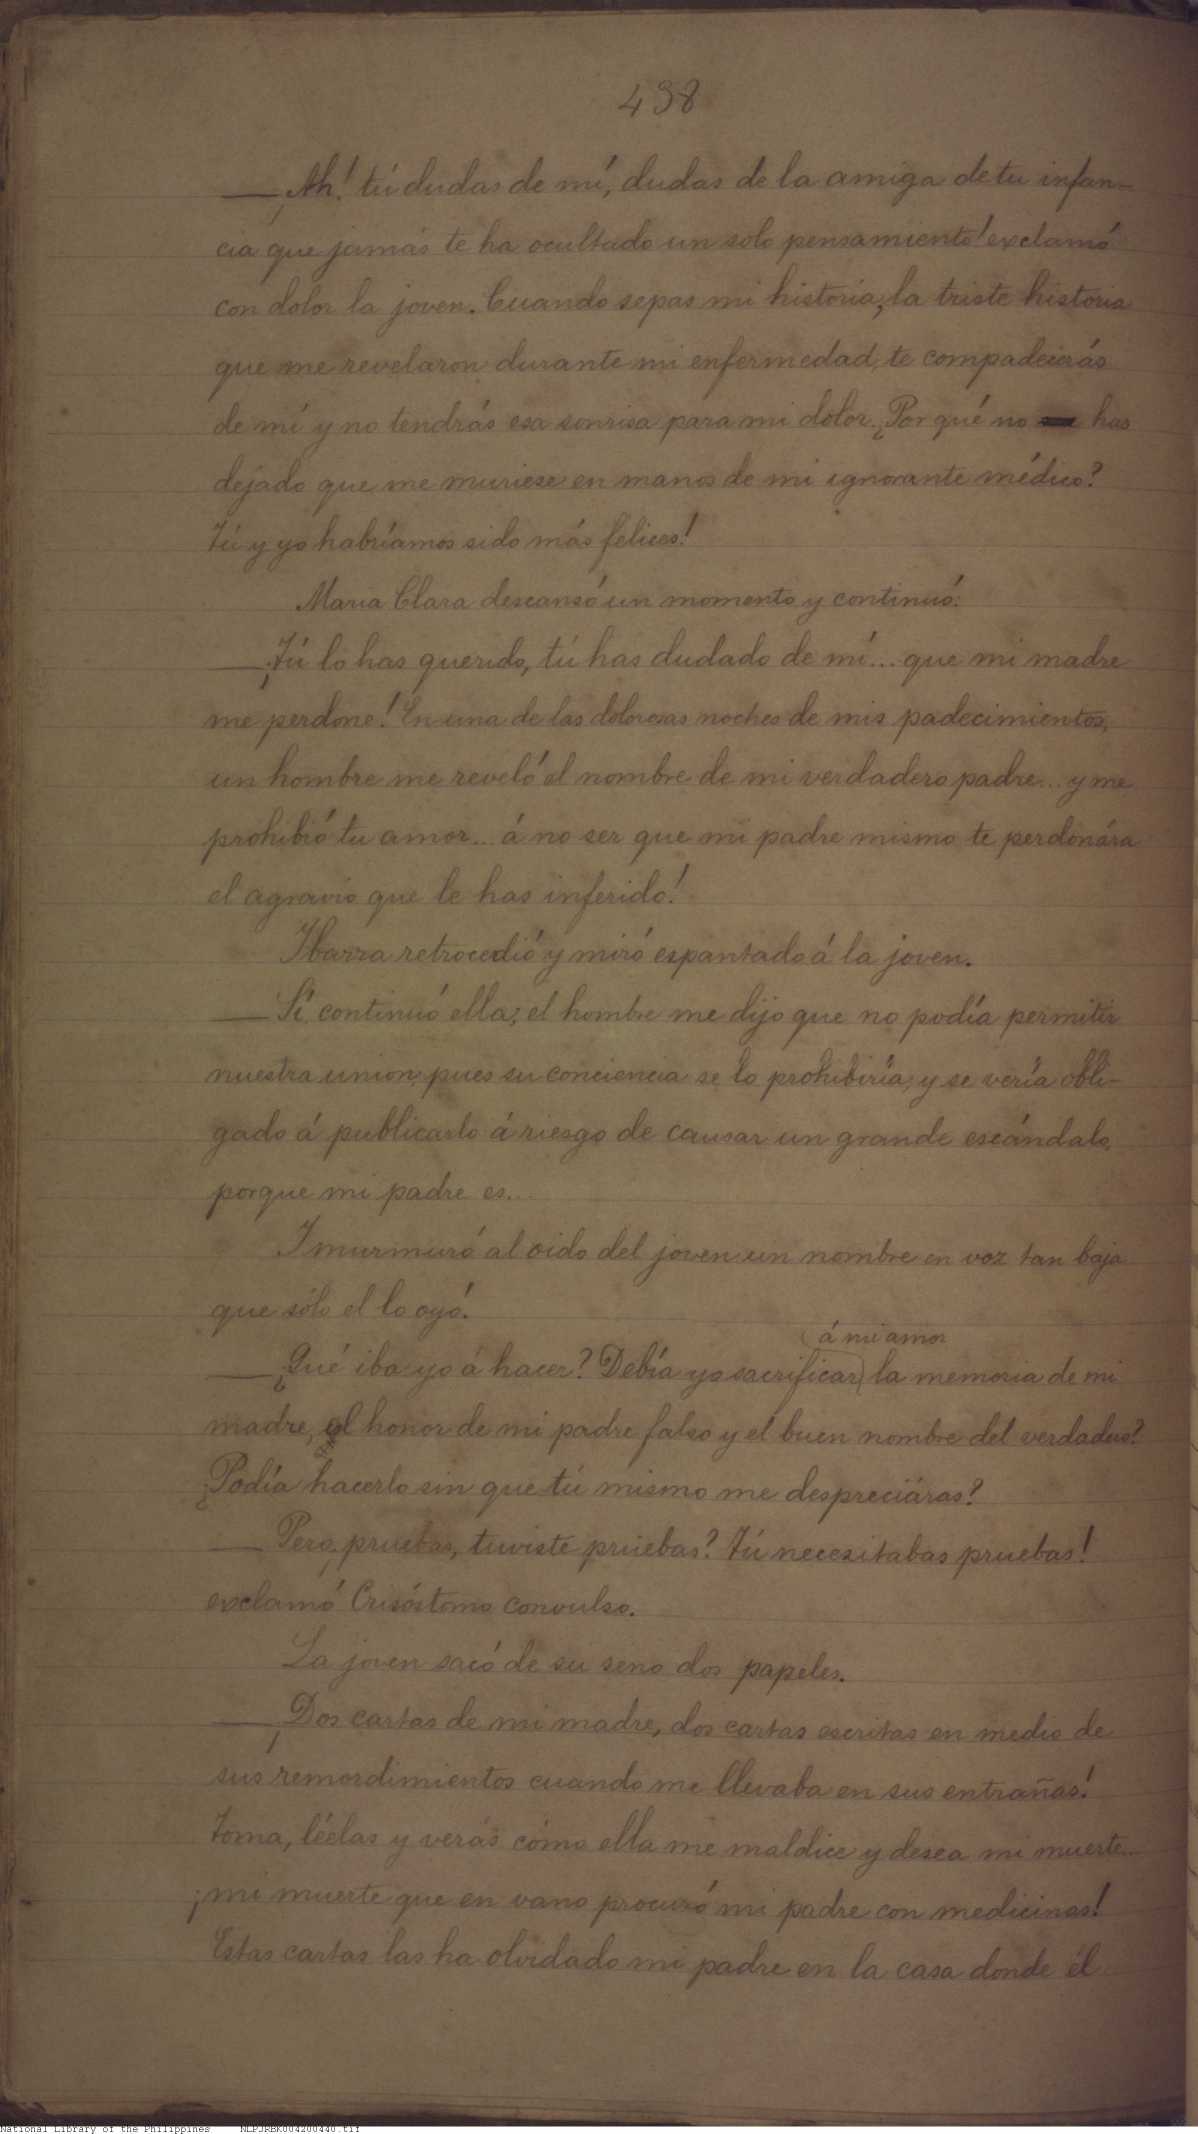 438
— ¡Ah! tú dudas de mí, dudas de la amiga de tu infan-
cia que jamás te ha ocultado un solo pensamiento! exclamó
con dolor la joven. Cuando sepas mi historia, la triste historia
que me revelaron durante mi enfermedad, te compadecerás
de mí y no tendrás esa sonrisa para mi dolor. ¿Por qué no has
dejado que me muriese en manos de mi ignorante médico?
Tú y yo habríamos sido más felices!
María Clara descansó un momento y continuó:
— ¡Tú lo has querido, tú has dudado de mí... que mi madre
me perdone! En una de las dolorosas noches de mis padecimientos,
un hombre me reveló el nombre de mi verdadero padre... y me
prohibió tu amor... á no ser que mi padre mismo te perdonára
el agravio que le has inferido!
Ibarra retrocedió y miró espantado á la joven.
— Sí, continuó ella; el hombre me dijo que no podía permitir
nuestra union, pues su conciencia se lo prohibiría, y se vería obli-
gado á publicarlo á riesgo de causar un grande escándalo,
porque mi padre es...
I murmuró al oido del joven un nombre en voz tan baja
que sólo el lo oyó.
á mi amor
— ¿Qué iba yo á hacer? Debía yo sacrificar la memoria de mi
madre, el honor de mi padre falso y el buen nombre del verdadero?
¿Podía hacerlo sin que tú mismo me despreciáras?
— Pero, pruebas, tuviste pruebas? Tú necesitabas pruebas!
exclamó Crisóstomo convulso.
La joven sacó de su seno dos papeles.
— ¡Dos cartas de mi madre, dos cartas escritas en medio de
sus remordimientos cuando me llevaba en sus entrañas!
Toma, léelas y verás cómo ella me maldice y desea mi muerte...
¡mi muerte que en vano procuró mi padre con medicinas!
Estas cartas las ha olvidado mi padre en la casa donde él
National Library of the Philippines NLPJRBK004200440.tif